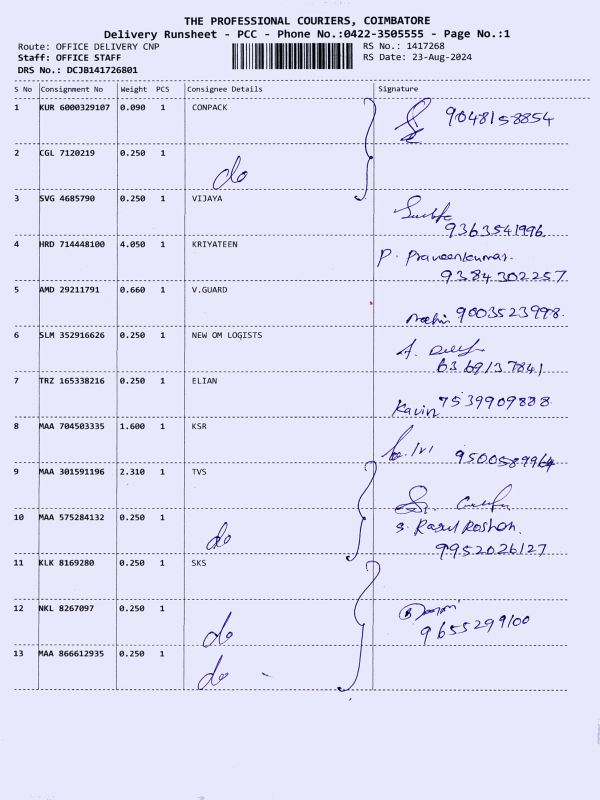 THE PROFESSIONAL COURIERS, COIMBATORE
Delivery Runsheet - PCC - Phone No.:0422-3505555 - Page No.:1
Route: OFFICE DELIVERY CNP RS No.: 1417268
Staff: OFFICE STAFF RS Date: 23-Aug-2024
DRS No.: DCJB141726801
S No Consignment No Weight PCS Consignee Details Signature
1 KUR 6000329107 0.090 1 CONPACK 9048158854
2 CGL 7120219 0.250 1 do
3 SVG 4685790 0.250 1 VIJAYA
9363541996
4 HRD 714448100 4.050 1 KRIYATEEN P. Praveenkumar.
9384302257
5 AMD 29211791 0.660 1 V.GUARD
9003523998.
6 SLM 352916626 0.250 1 NEW OM LOGISTS
6369137841
7 TRZ 165338216 0.250 1 ELIAN
Kavin 7539909888
8 MAA 704503335 1.600 1 KSR
9500589964
9 MAA 301591196 2.310 1 TVS
10 MAA 575284132 0.250 1 do S. Rasul Roshan.
9952026127
11 KLK 8169280 0.250 1 SKS
12 NKL 8267097 0.250 1 do
9655299100
13 MAA 866612935 0.250 1 do